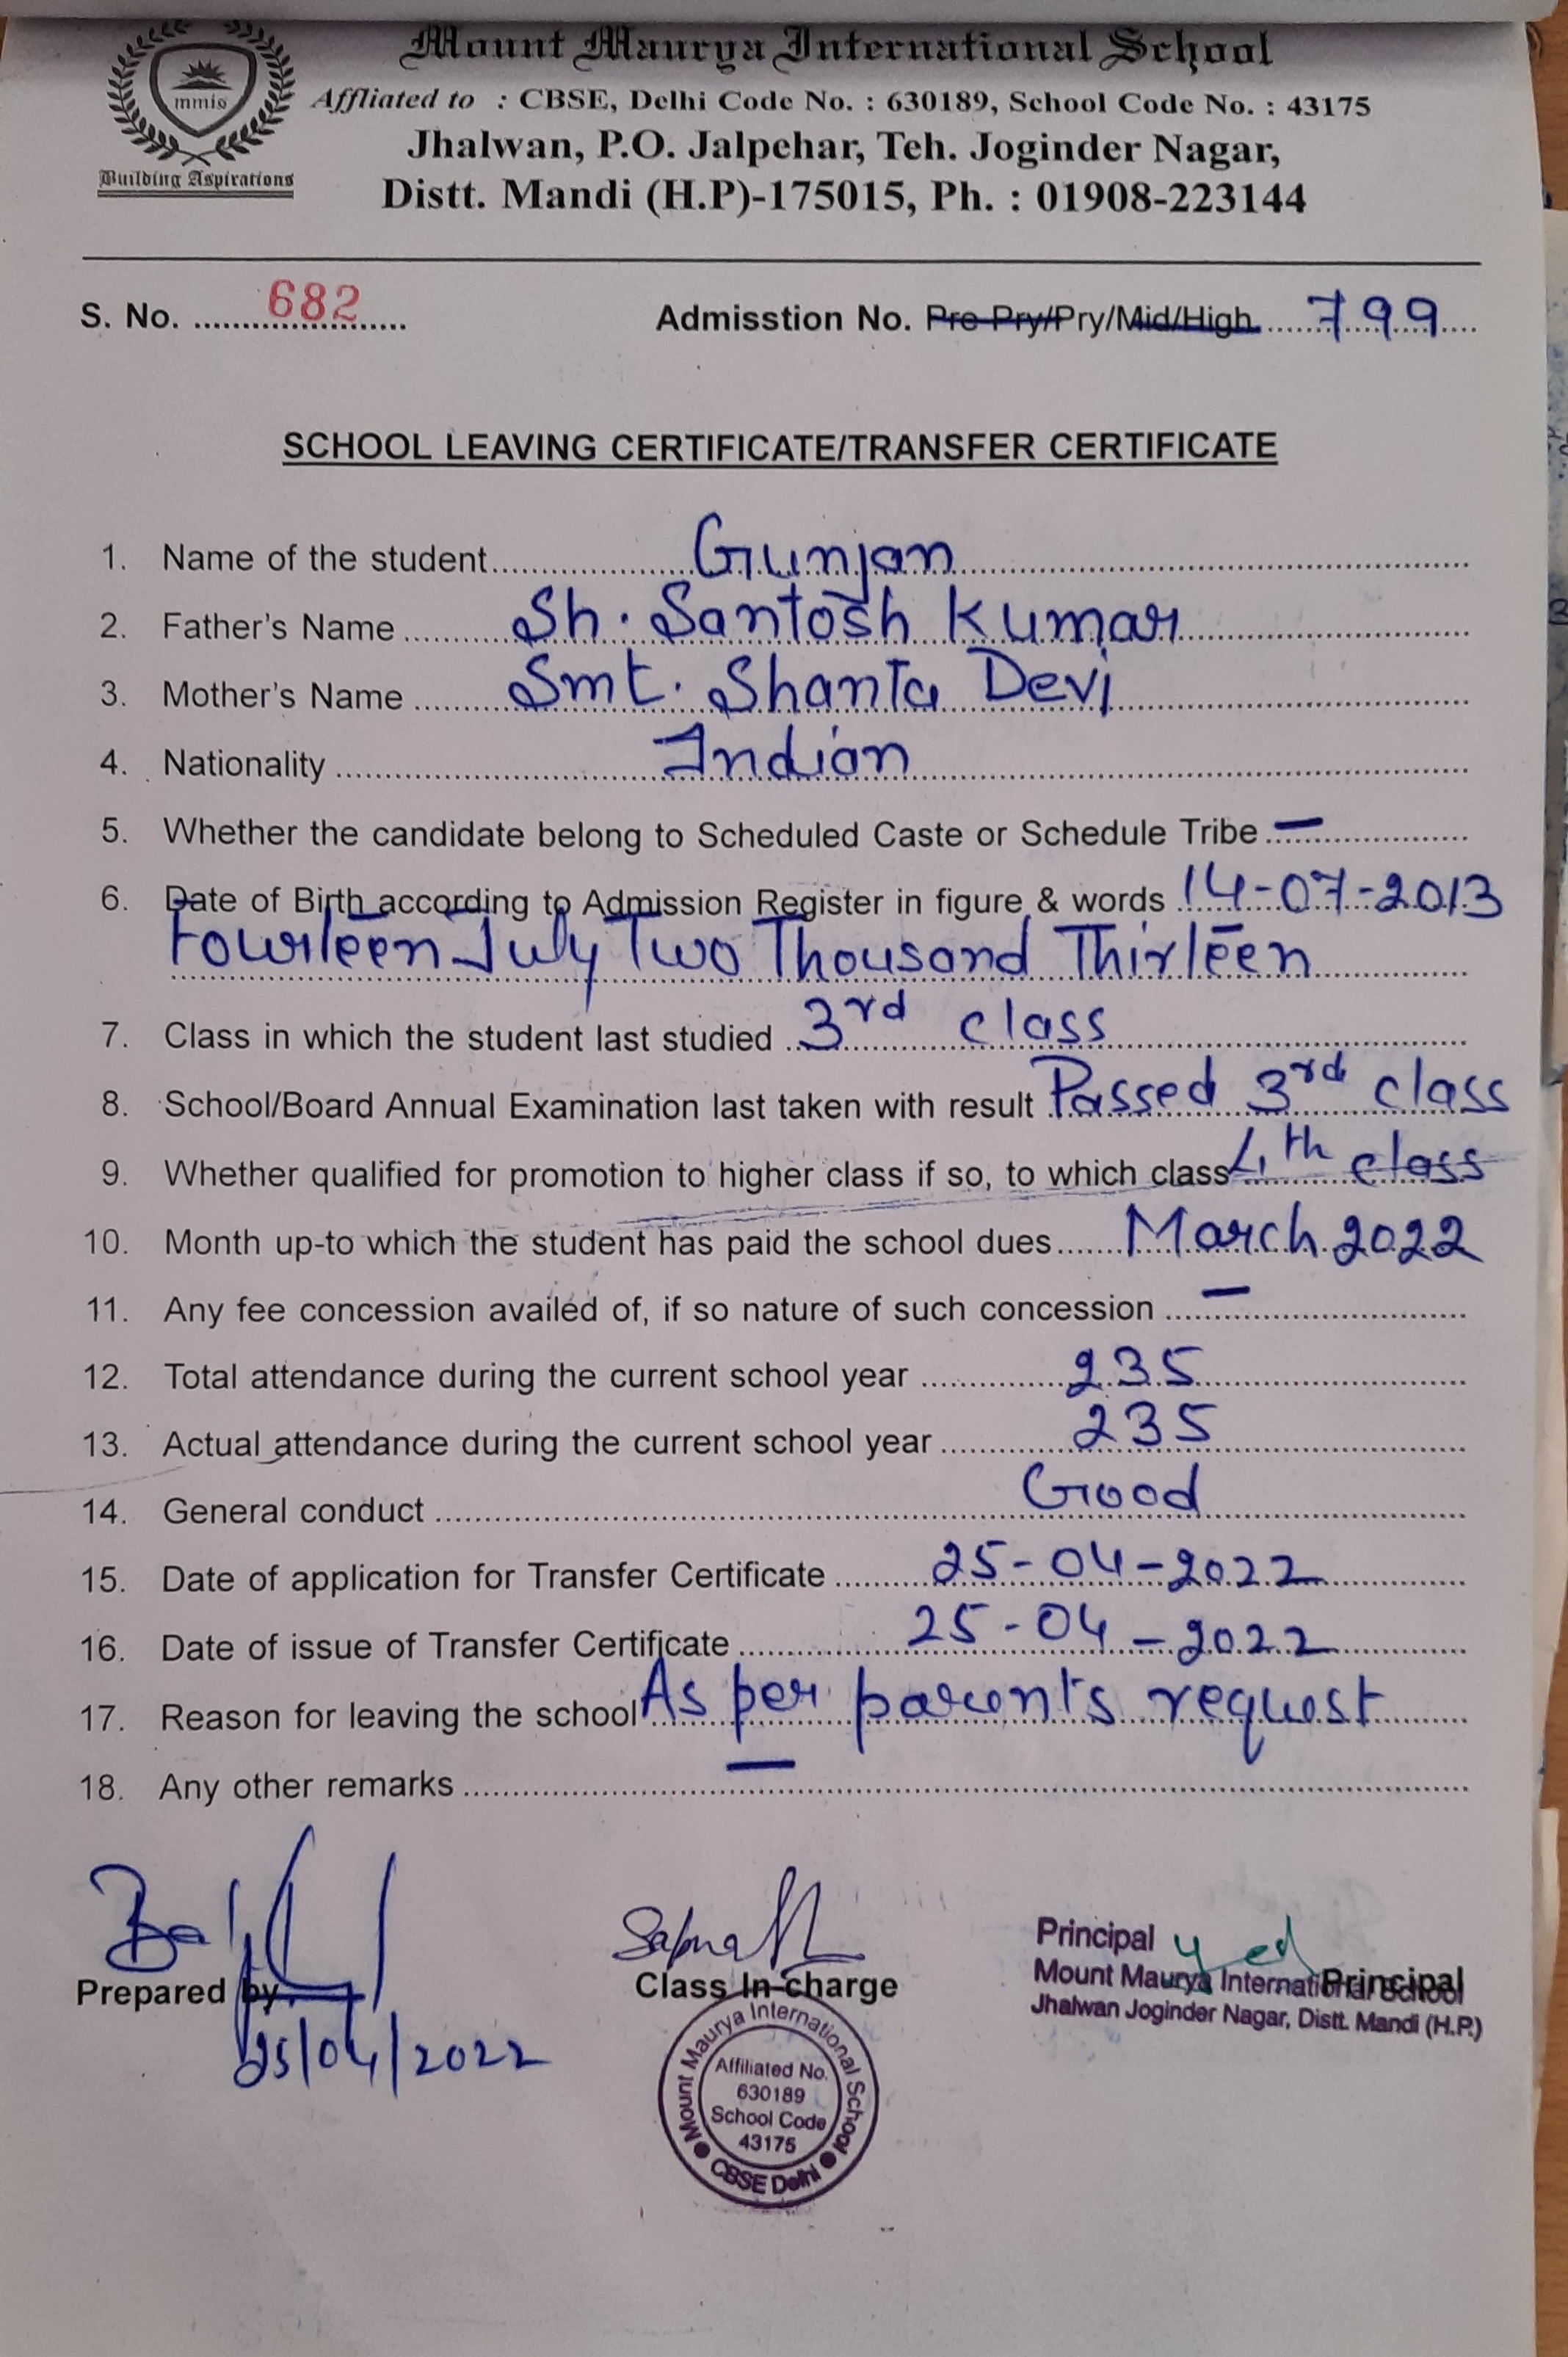 Mount Maurya International School
mmis
Building Aspirations
Affliated to : CBSE, Delhi Code No. : 630189, School Code No. : 43175
Jhalwan, P.O. Jalpehar, Teh. Joginder Nagar,
Distt. Mandi (H.P)-175015, Ph. : 01908-223144
S. No. 682 Admisstion No. Pre-Pry/Pry/Mid/High 799
SCHOOL LEAVING CERTIFICATE/TRANSFER CERTIFICATE
1. Name of the student Gunjan
2. Father's Name Sh. Santosh Kumar
3. Mother's Name Smt. Shanta Devi
4. Nationality Indian
5. Whether the candidate belong to Scheduled Caste or Schedule Tribe —
6. Date of Birth according to Admission Register in figure & words 14-07-2013
Fourteen July Two Thousand Thirteen
7. Class in which the student last studied 3rd class
8. School/Board Annual Examination last taken with result Passed 3rd class
9. Whether qualified for promotion to higher class if so, to which class 4th class
10. Month up-to which the student has paid the school dues March 2022
11. Any fee concession availed of, if so nature of such concession —
12. Total attendance during the current school year 235
13. Actual attendance during the current school year 235
14. General conduct Good
15. Date of application for Transfer Certificate 25-04-2022
16. Date of issue of Transfer Certificate 25-04-2022
17. Reason for leaving the school As per parents request
18. Any other remarks —
Prepared by
25/04/2022
Sapna
Class In-charge
Principal
Mount Maurya International School
Jhalwan Joginder Nagar, Distt. Mandi (H.P.)
Principal
Mount Maurya International School
Affiliated No.
630189
School Code
43175
CBSE Delhi